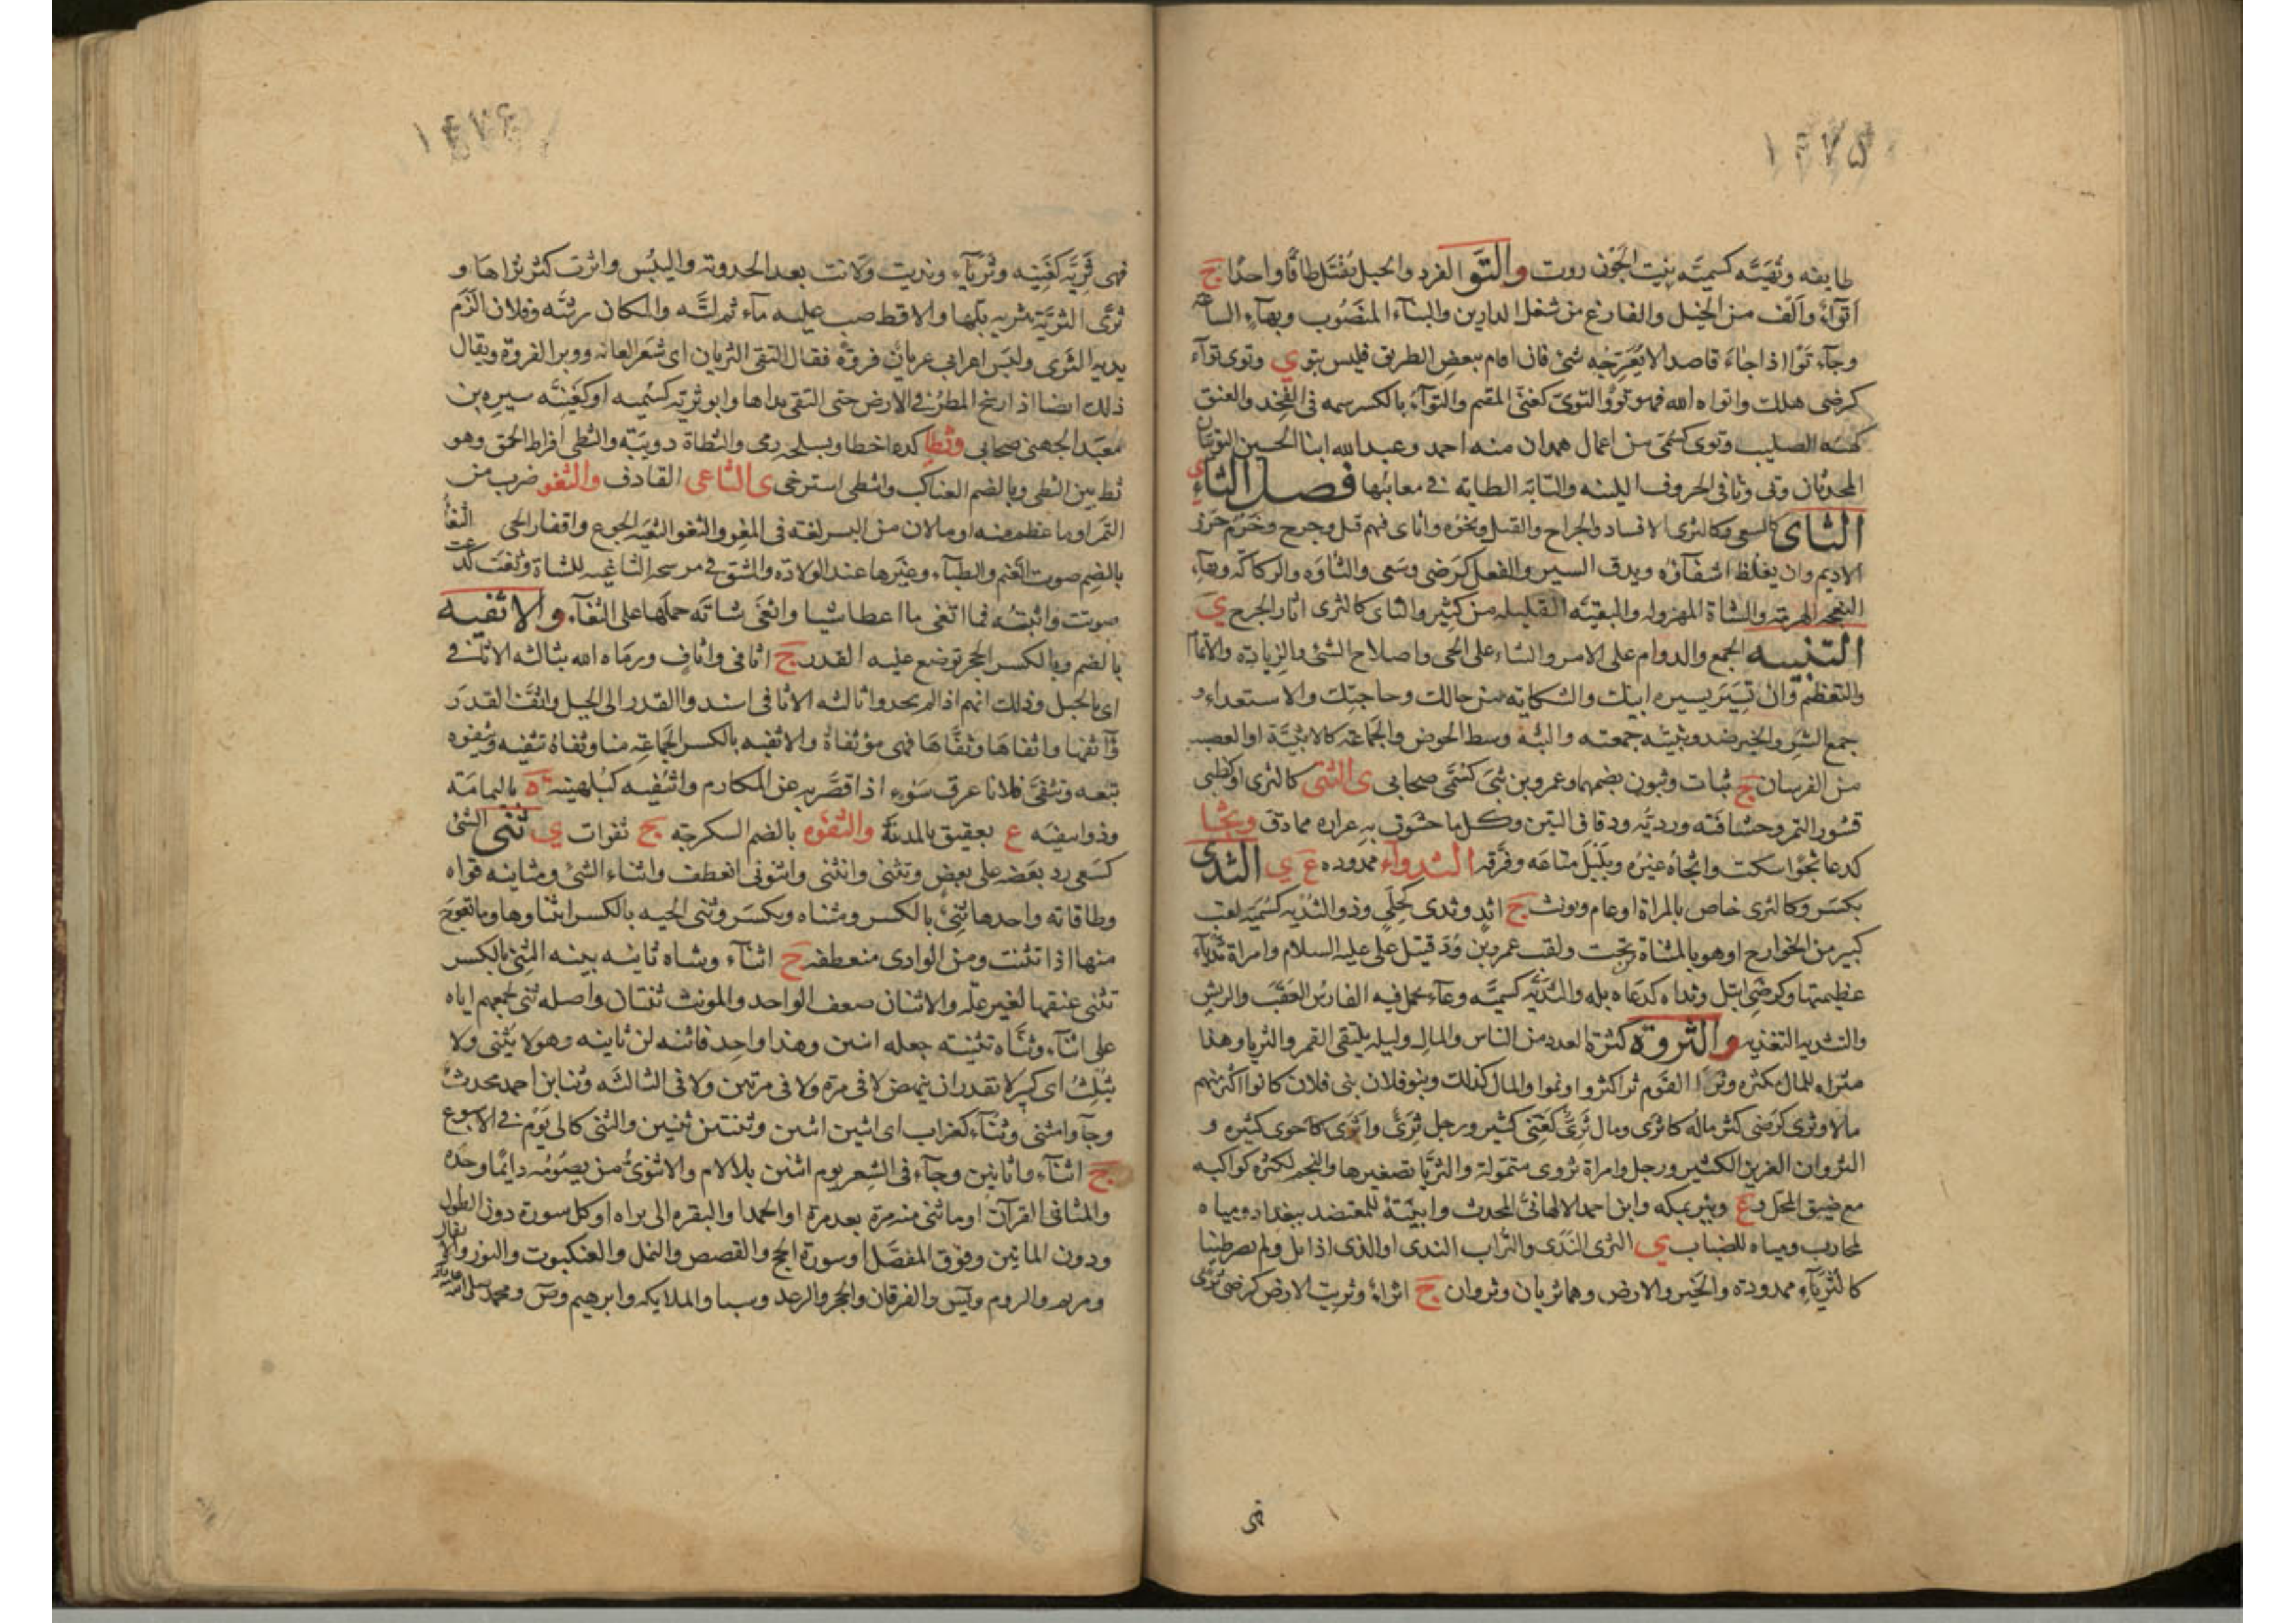 ١٤٧٥
طايفه وتُهَيَّه كسميَّه بنيت الجَوْن روت والتَّو الفرد والحبل يُفْتَل طاقًا واحدًا ج
اَتْوآءٌ وَاَلْف من الخيل والفارغ من شغل الدارين والبنآء المنصُوب وبهآء الساعه
وجآء تَوًّا اذا جاءَ قاصدا لا يُعَرِّجُه شئ فان اقام ببعض الطريق فليس بتو ي وتوى توآء
كرضى هلك واتواه الله فهو توٍ والتوىّ كغنىّ المقيم والتوآءُ بالكسر سمه فى الفخذ والعنق
كهئه الصليب وتوى كسُمَىّ من اعمال همدان منه احمد وعبدالله ابنا الحسين التويّان
المحدثان وتى وتا فى الحروف اللينه والتايَة الطايَة فى معانيها فصل الثاءِ ى
الثأى كالسعى وكالثرى الافساد والجراح والقتل ونحوُه واثاى فيهم قتل وجرح وخَرْم خَرَز
الاديم وان يغلظ اشفاه ويدق السير والفعل كرَضى وسَعى والثاوَه والركاكَه وبهآء
النعجه الهرمة والشاة المهزوله والبقيّه القليله من كثير والثاى كالثرى اثار الجرح ي
التثبيه الجمع والدوام على الامر والثناء على الحى واصلاح الشئ والزيادة والاتمام
والتعظيم وَان تسير بسيره ابيك والشكايه من حالك وحاجتك والاستعداء و
جمع الشر والخير ضد وثبيته جمعته والثبه وسط الحوض والجماعة كالاثبيّة او العصبه
من الفرسان ج ثبات وثبون بضمهما وعمرو بن ثُبَىّ كسُمَى صحابى ى الثَّتى كالثرى او كظبى
قشور التمر وحُسَافته ورديّه ودقاق التبن وكل ما حشوت به غراره مما دق وثجا
كدعا ثجوًا سكت واثجاهُ غيرُه وبَلْبَلَ متاعَه وفرَّقه الثدواء ممدوده ع ي الثدى
بكسر وكالثرى خاص بالمراة او عام ويونث ج اثدٍ وثدى كحُلىٍ وذو الثُديه كسُمَيه لقب
كبير من الخوارج او هو بالمثناة تحت ولقب عمرو بن وُدّ قتيل على عليه السلام وامراة ثديآء
عظيمتها وكرضى ابتل وثداه كدعاه بله والثُدَيَّه كسميَّه وعآء يحمل فيه الفارس العَقَب والريش
والتثديه التغذيه والثروة كثرة العدد من الناس والمال وليله يلتقى القمر والثريا وهذا
مثراه للمال مكثره وثرا القوم ثرا كثروا ونموا والمال كذلك وبنو فلان بنى فلان كانوا اكثر منهم
مالا وثرى كرَضى كثر ماله كاثرى ومال ثرىّ كغَنِى كثير ورجل ثرىّ واثرى كاحوى كثيره و
الثروان الغزير الكثير ورجل وامراة ثروى متمولة والثريّا تصغيرها والنجم لكثرة كواكبه
مع ضيق المحل وع وبئر بمكه وابن احمد الالهانىّ المحدث وابنيَة للمعتضد ببغداد ومياه
لمحارب ومياه للضباب ي الثرى النَدَى والتراب الندى او الذى اذا بل ولم يصر طينا
كالثريآءِ ممدودة والخير والارض وهما ثريان وثروان ج اثراءٌ وثريت الارض كرضى ثرىً
فهى
١٤٧٦
فهى ثَريَّه كغَنِيه وثريآء ونديت ولانت بعد الجدوبه واليبس واثرت كثر ثراها و
ثرّى التربَة تثريه بلها والاقط صب عليه مآء ثم لتَّه والمكان رشَّه وفلان الزَم
يديه الثرى ولبس اعرابي عريان فروةً فقال التقى الثريان اى شعر العانه ووبر الفروة ويقال
ذلك ايضا اذا رسخ المطر فى الارض حتى التقى نداها وابو ثريه كسُميه او كغَنيّه سبره بن
معبد الجهنى صحابى وثطا كدعا خطا وبسلحه رمى والثطاة دويبّه والثطى افراط الحمق وهو
ثط بين الثطى وبالضم العناكب واثطى استرخى ى الثاعى القاذف والثعو ضرب من
التمر او ما عظم منه او ما لان من البسر لغته فى المغو والثغو الثغيَه الجوع واقفار الحى الثغا
بالضم صوت الغنم والظبآء وغيرها عند الولاده والشق فى مرمه الثاغيه للشاة وثغت كدعت
صوتت واتيتُه فما اثغى ما اعطا شيا واثغى شاته حملها على الثغآء والاثفيه
بالضم وبالكسر الحجر توضع عليه القدر ج اثافى واثافٍ ورماه الله بثالثه الاثافى
اى بالجبل وذلك انهم اذا لم يجدوا ثالثه الاثافى اسندوا القدر الى الجبل واثفَّ القدرَ
وَآثفها واثفاها وثفَّاهَا فهى مؤثفاة والاثفيه بالكسر الجماعة منا وثفاهُ تثفيه ويثفوه
تبعه وتثفىّ فلانا عرق سَوءٍ اذا قصَّر به عن المكارم واثيفيه كبُلهنيه ة باليمامة
وذو اثيفيه ع بعقيق المدينة والثفوه بالضم السكرجه ج ثفوات ي ثنى الشئ
كسَعى رد بعضه على بعض وتثنى وانثنى واثنونى انعطف واثناء الشئ ومثانيه قواه
وطاقاته واحدها ثنىٌ بالكسر ومثناه ويكسر وثنى الحيه بالكسر انثناوها وما تعوّج
منها اذا تثنت ومن الوادى منعطفه ج اثنآء وشاه ثانيه بينه الثنِى بالكسر
تثنى عنقها لغير علّه والاثنان ضعف الواحد والمونث ثنتان واصله ثنى لجمعهم اياه
على اثنآء وثنَّاه تثنية جعله اثنين وهذا واحد فاثنه لن ثانيه وهو لا يثنى ولا
يثلث اى كبير لا يقدر ان ينهض لا فى مرة ولا فى مرتين ولا فى الثالثه وثنا بن احمد محدث
وجآوا مثنى وثنآء كغراب اى اثنين اثنين وثنتين ثنتين والثنى كالى يَوْم فى الاسبوع
ج اثنآء واثانين وجآء فى الشعر يوم اثنين بلا لام والاثنوىُّ من يصومُه دايمًا وحدَه
والمثانى القرآن او ما ثنى منه مرة بعد مرة او الحمد او البقره الى براه او كل سورة دون الطول
ودون الماتين وفوق المفصَّل او سورة الحج والقصص والنمل والعنكبوت والنور والانفال
ومريم والروم ويس والفرقان والحجر والرعد وسبا والملايكه وابرهيم وص ومحمد صلى الله عليه